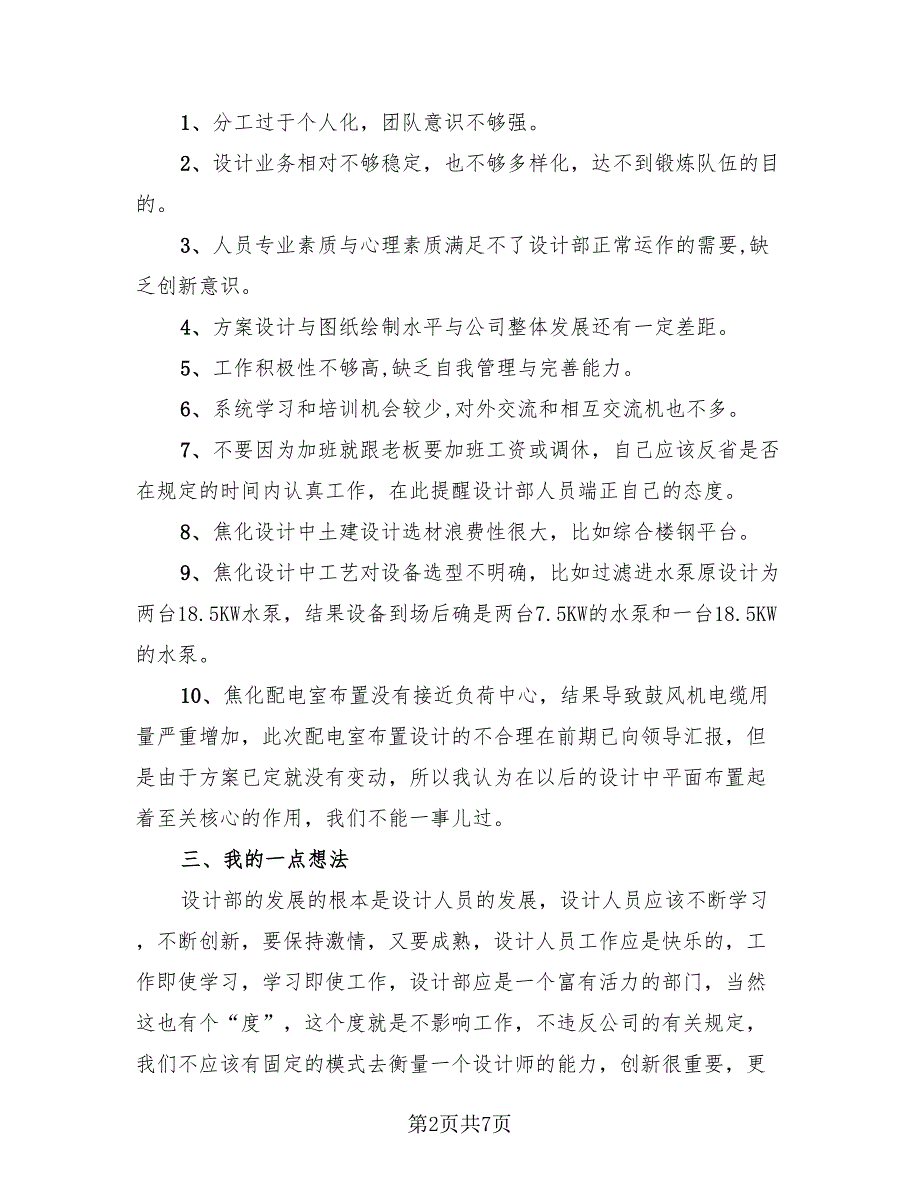 1、分工过于个人化，团队意识不够强。
2、设计业务相对不够稳定，也不够多样化，达不到锻炼队伍的目
的。
3、人员专业素质与心理素质满足不了设计部正常运作的需要,缺
乏创新意识。
4、方案设计与图纸绘制水平与公司整体发展还有一定差距。
5、工作积极性不够高,缺乏自我管理与完善能力。
6、系统学习和培训机会较少,对外交流和相互交流机也不多。
7、不要因为加班就跟老板要加班工资或调休，自己应该反省是否
在规定的时间内认真工作，在此提醒设计部人员端正自己的态度。
8、焦化设计中土建设计选材浪费性很大，比如综合楼钢平台。
9、焦化设计中工艺对设备选型不明确，比如过滤进水泵原设计为
两台18.5KW水泵，结果设备到场后确是两台7.5KW的水泵和一台18.5KW
的水泵。
10、焦化配电室布置没有接近负荷中心，结果导致鼓风机电缆用
量严重增加，此次配电室布置设计的不合理在前期已向领导汇报，但
是由于方案已定就没有变动，所以我认为在以后的设计中平面布置起
着至关核心的作用，我们不能一事儿过。
三、我的一点想法
设计部的发展的根本是设计人员的发展，设计人员应该不断学习
，不断创新，要保持激情，又要成熟，设计人员工作应是快乐的，工
作即使学习，学习即使工作，设计部应是一个富有活力的部门，当然
这也有个“度”，这个度就是不影响工作，不违反公司的有关规定，
我们不应该有固定的模式去衡量一个设计师的能力，创新很重要，更
第2页共7页